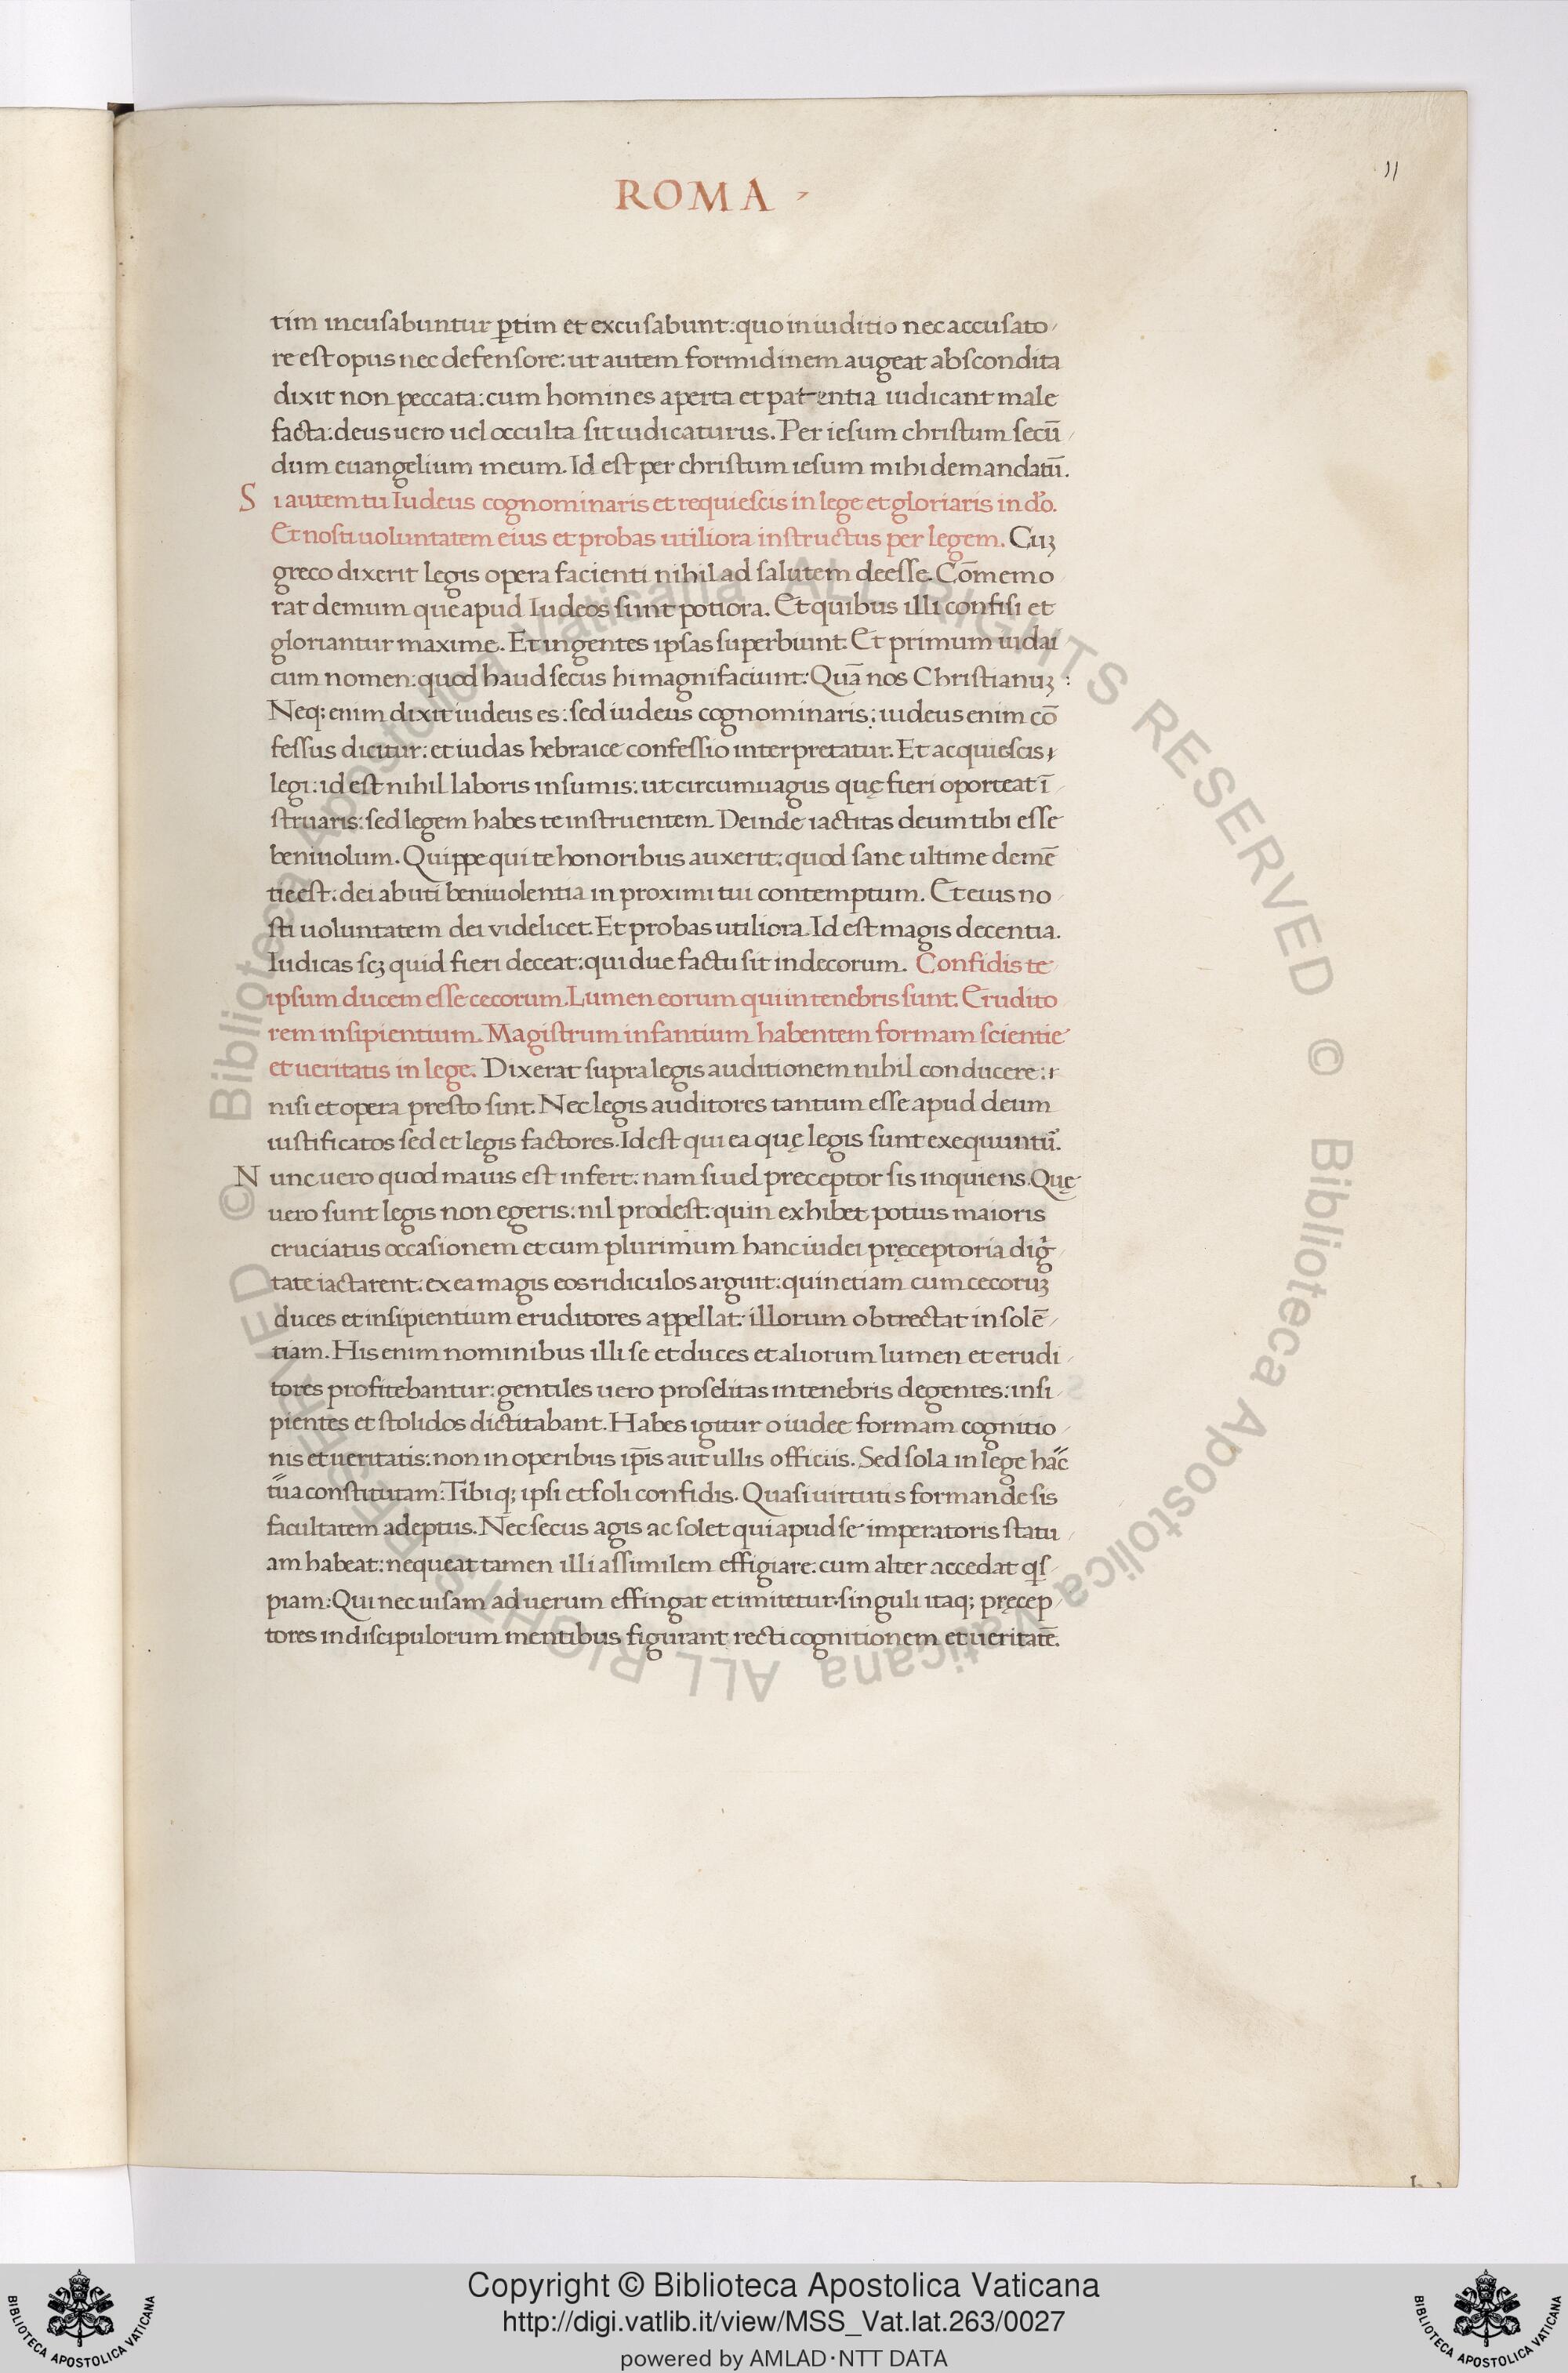 11
ROMA
tim incusabuntur p̱tim et excusabunt: quo in iuditio nec accusato
re est opus nec defensore: ut autem formidinem augeat abscondita
dixit non peccata: cum homines aperta et patentia iudicant male
facta: deus uero uel occulta sit iudicaturus. Per iesum christum secū
dum euangelium meum. Id est per christum iesum mihi demandatū.
Si autem tu Iudeus cognominaris et requiescis in lege et gloriaris in do.
Et nosti uoluntatem eius et probas utiliora instructus per legem. Cuꝫ
greco dixerit legis opera facienti nihil ad salutem deesse. Cōmemo
rat demum que apud Iudeos sunt potiora. Et quibus illi confisi et
gloriantur maxime. Et in gentes ipsas superbiunt. Et primum iudai
cum nomen: quod haud secus hi magnifaciunt: Quā nos Christianuꝫ:
Neq; enim dixit iudeus es: sed iudeus cognominaris: iudeus enim cō
fessus dicitur: et iudas hebraice confessio interpretatur. Et acquiescis
legi: id est nihil laboris insumis: ut circumuagus quę fieri oporteat ī
struaris: sed legem habes te instruentem. Deinde iactitas deum tibi esse
beniuolum. Quippe qui te honoribus auxerit: quod sane ultime demē
tie est: dei abuti beniuolentia in proximi tui contemptum. Et eius no
sti uoluntatem dei videlicet. Et probas utiliora. Id est magis decentia.
Iudicas scꝫ quid fieri deceat: qui due factu sit indecorum. Confidis te
ipsum ducem esse cecorum. Lumen eorum qui in tenebris sunt. Erudito
rem insipientium. Magistrum infantium habentem formam scientie
et ueritatis in lege. Dixerat supra legis auditionem nihil conducere:
nisi et opera presto sint. Nec legis auditores tantum esse apud deum
iustificatos sed et legis factores. Id est qui ea quę legis sunt exequuntu᷑.
Nunc uero quod maius est infert: nam si uel preceptor sis inquiens. Quę
uero sunt legis non egeris: nil prodest: quin exhibet potius maioris
cruciatus occasionem et cum plurimum hanc iudei pręceptoria
tate iactarent: ex ea magis eos ridiculos arguit: quin etiam cum cecoruꝫ
duces et insipientium eruditores appellat: illorum obtrectat insolē
tiam. His enim nominibus illi se et duces et aliorum lumen et erudi
tores profitebantur: gentiles uero proselitas in tenebris degentes: insi
pientes et stolidos dictitabant. Habes igitur o iudee formam cognitio
nis et ueritatis: non in operibus ip̄is aut ullis officiis. Sed sola in lege hac
tua constitutam: Tibi q; ipsi et soli confidis. Quasi uirtutis formande sis
facultatem adeptus. Nec secus agis ac solet qui apud se imperatoris statu
am habeat: nequeat tamen illi assimilem effigiare: cum alter accedat qis
piam: Qui nec uisam ad uerum effingat et imitetur. singuli itaq; pręcep
tores in discipulorum mentibus figurant recti cognitionem et ueritatē.
© Biblioteca Apostolica Vaticana ALL RIGHTS RESERVED © Biblioteca Apostolica Vaticana ALL RIGHTS RESERVED
Copyright © Biblioteca Apostolica Vaticana
http://digi.vatlib.it/view/MSS_Vat.lat.263/0027
powered by AMLAD·NTT DATA
BIBLIOTECA APOSTOLICA VATICANA
BIBLIOTECA APOSTOLICA VATICANA